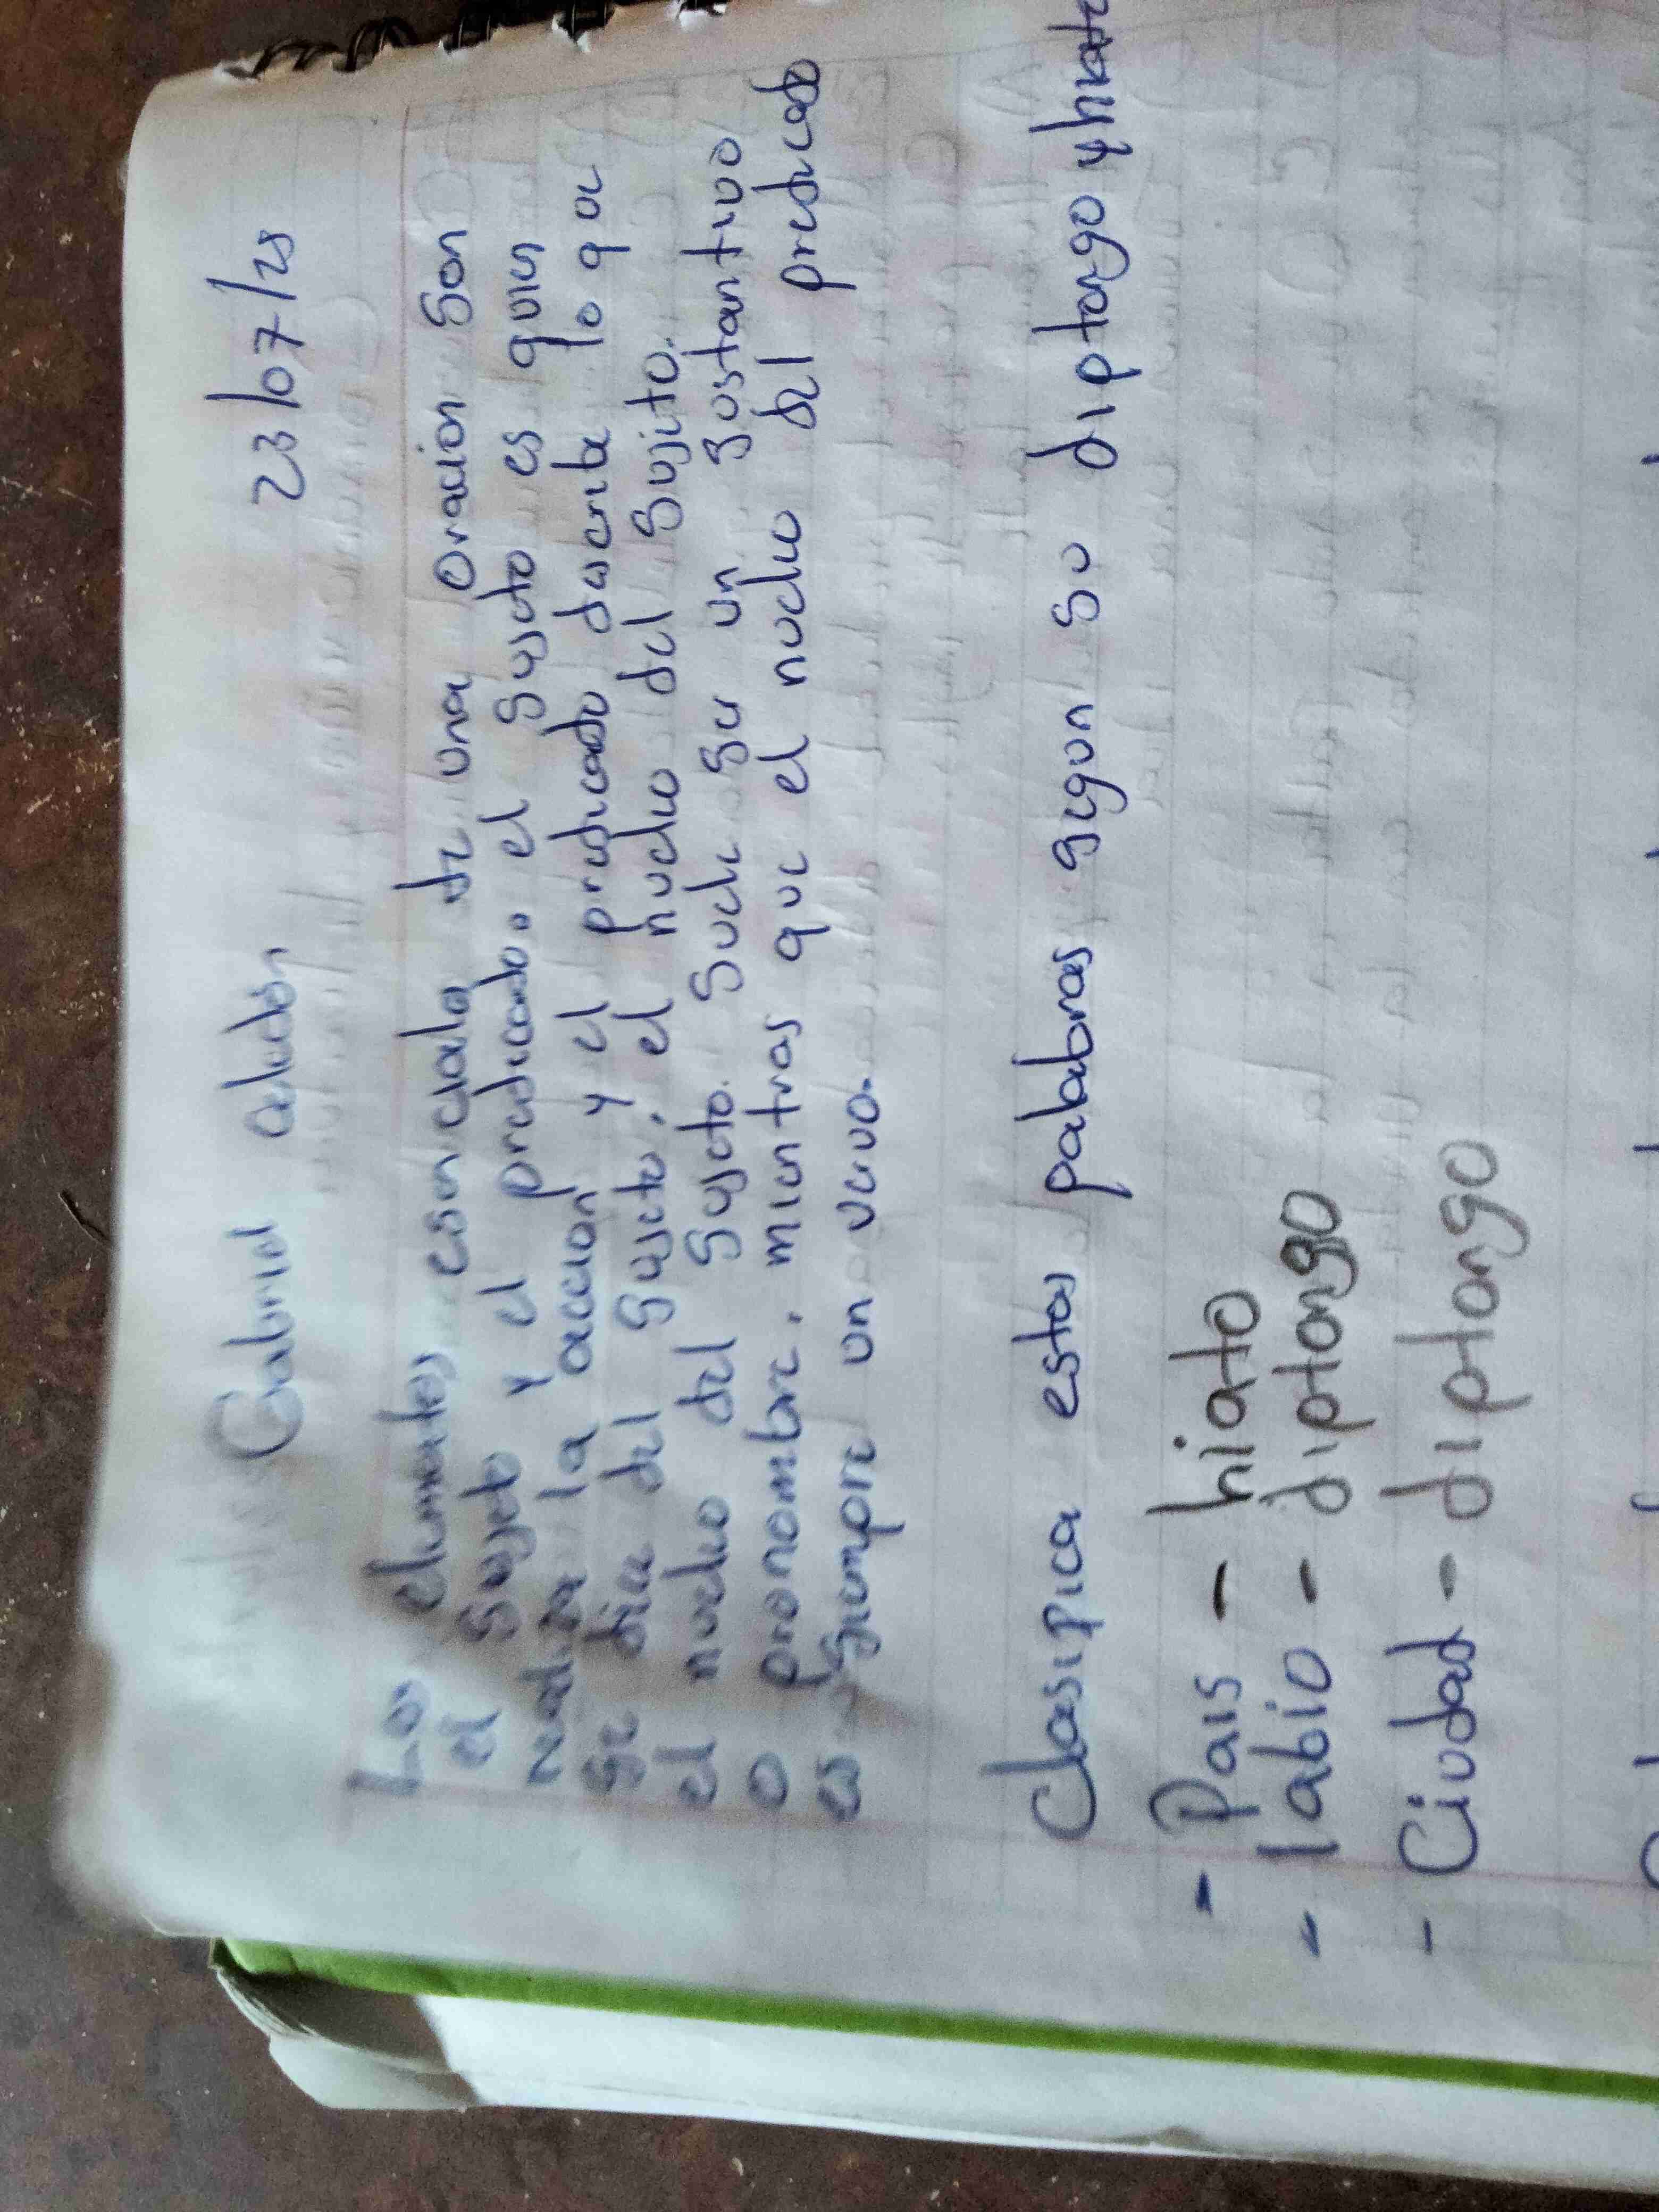 Gabriel 23/07/25
Los elementos esenciales de una oracion son
el sujeto y el predicado. el sujeto es quien
realiza la accion y el predicado describe lo que
se dice del sujeto, el nucleo del sujeto.
el nucleo del sujeto. suele ser un sostantivo
o pronombre, mientras que el nucleo del predicado
es siempre un vervo.
Clasifica estas palabras segun su diptongo y hiato
- Pais - hiato
- labio - diptongo
- Ciudad - diptongo